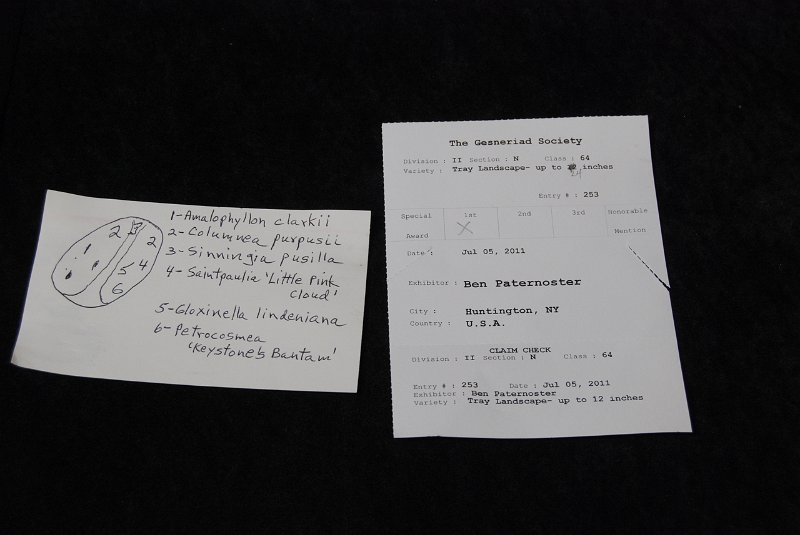 1-Amalophyllon clarkii
2-Columnea purpusii
3-Sinningia pusilla
4-Saintpaulia 'Little Pink
Cloud'
5-Gloxinella lindeniana
6-Petrocosmea
'Keystone's Bantam'
2 3
2
1
5 4
6
The Gesneriad Society
Division : II Section : N Class : 64
Variety : Tray Landscape- up to 24 inches
Entry # : 253
Special Award 1st X 2nd 3rd Honorable Mention
Date : Jul 05, 2011
Exhibitor : Ben Paternoster
City : Huntington, NY
Country : U.S.A.
CLAIM CHECK
Division : II Section : N Class : 64
Entry # : 253 Date : Jul 05, 2011
Exhibitor : Ben Paternoster
Variety : Tray Landscape- up to 12 inches